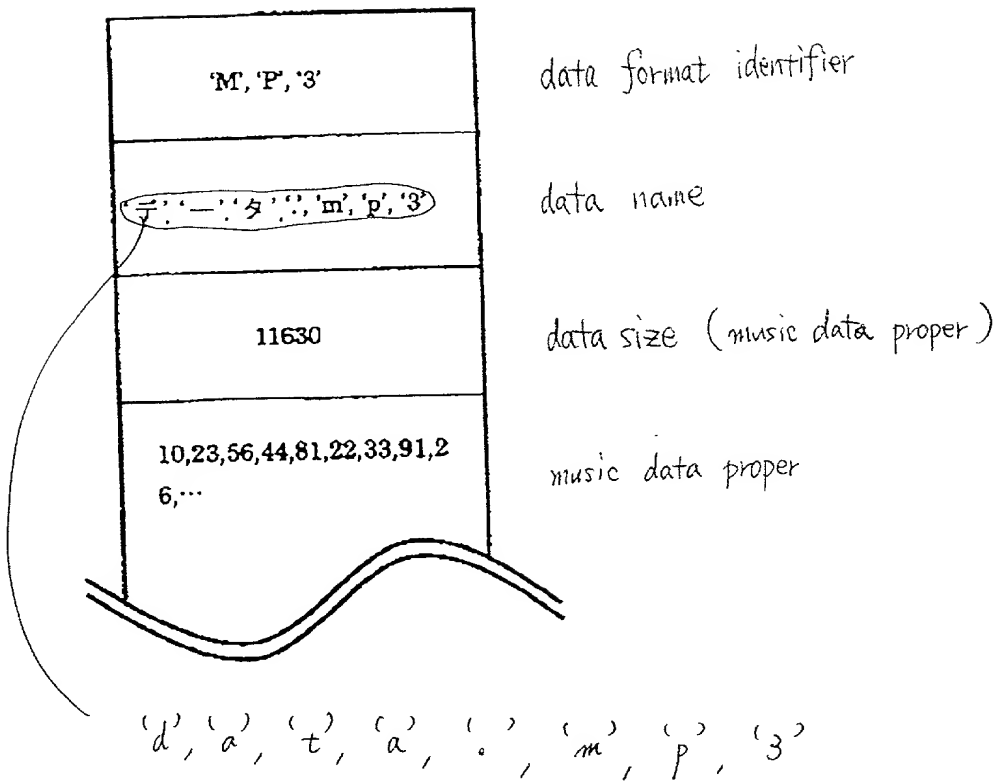 'M', 'P', '3'
data format identifier
'デ','ー','タ','.','m','p','3'
data name
11630
data size (music data proper)
10,23,56,44,81,22,33,91,2
6,…
music data proper
'd', 'a', 't', 'a', '.', 'm', 'p', '3'